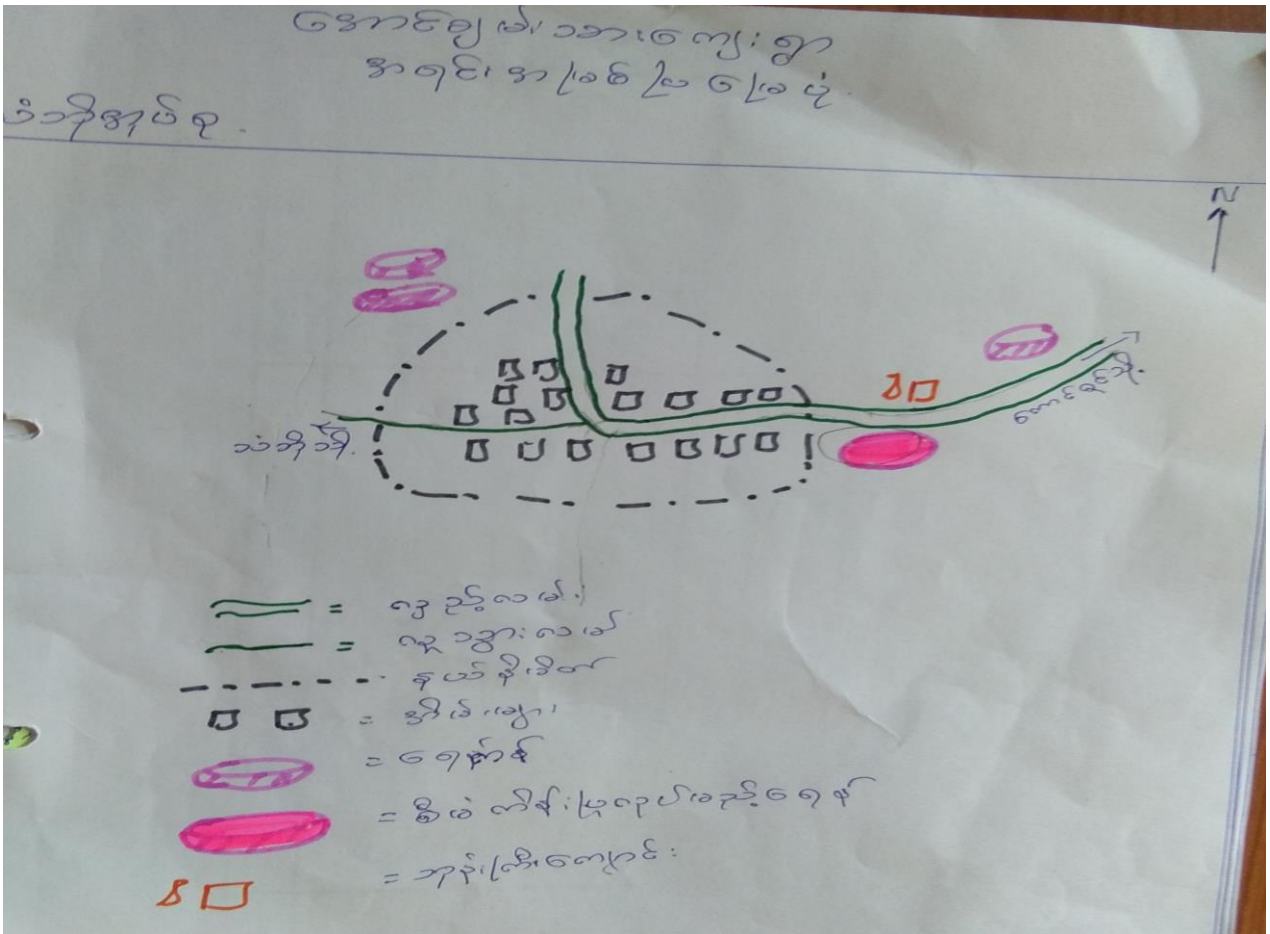 အောင်ချမ်းသာကျေးရွာ
အရင်းအမြစ်ပြမြေပုံ
သံဘိုအုပ်စု
N
သံဘိုသို့
တောင်ခွင်သို့
= လှည်းလမ်း
= လူသွားလမ်း
နယ်နိမိတ်
= အိမ်များ
= ရေကန်
= စီမံကိန်းပြုလုပ်မည့်ရေကန်
= ဘုန်းကြီးကျောင်း